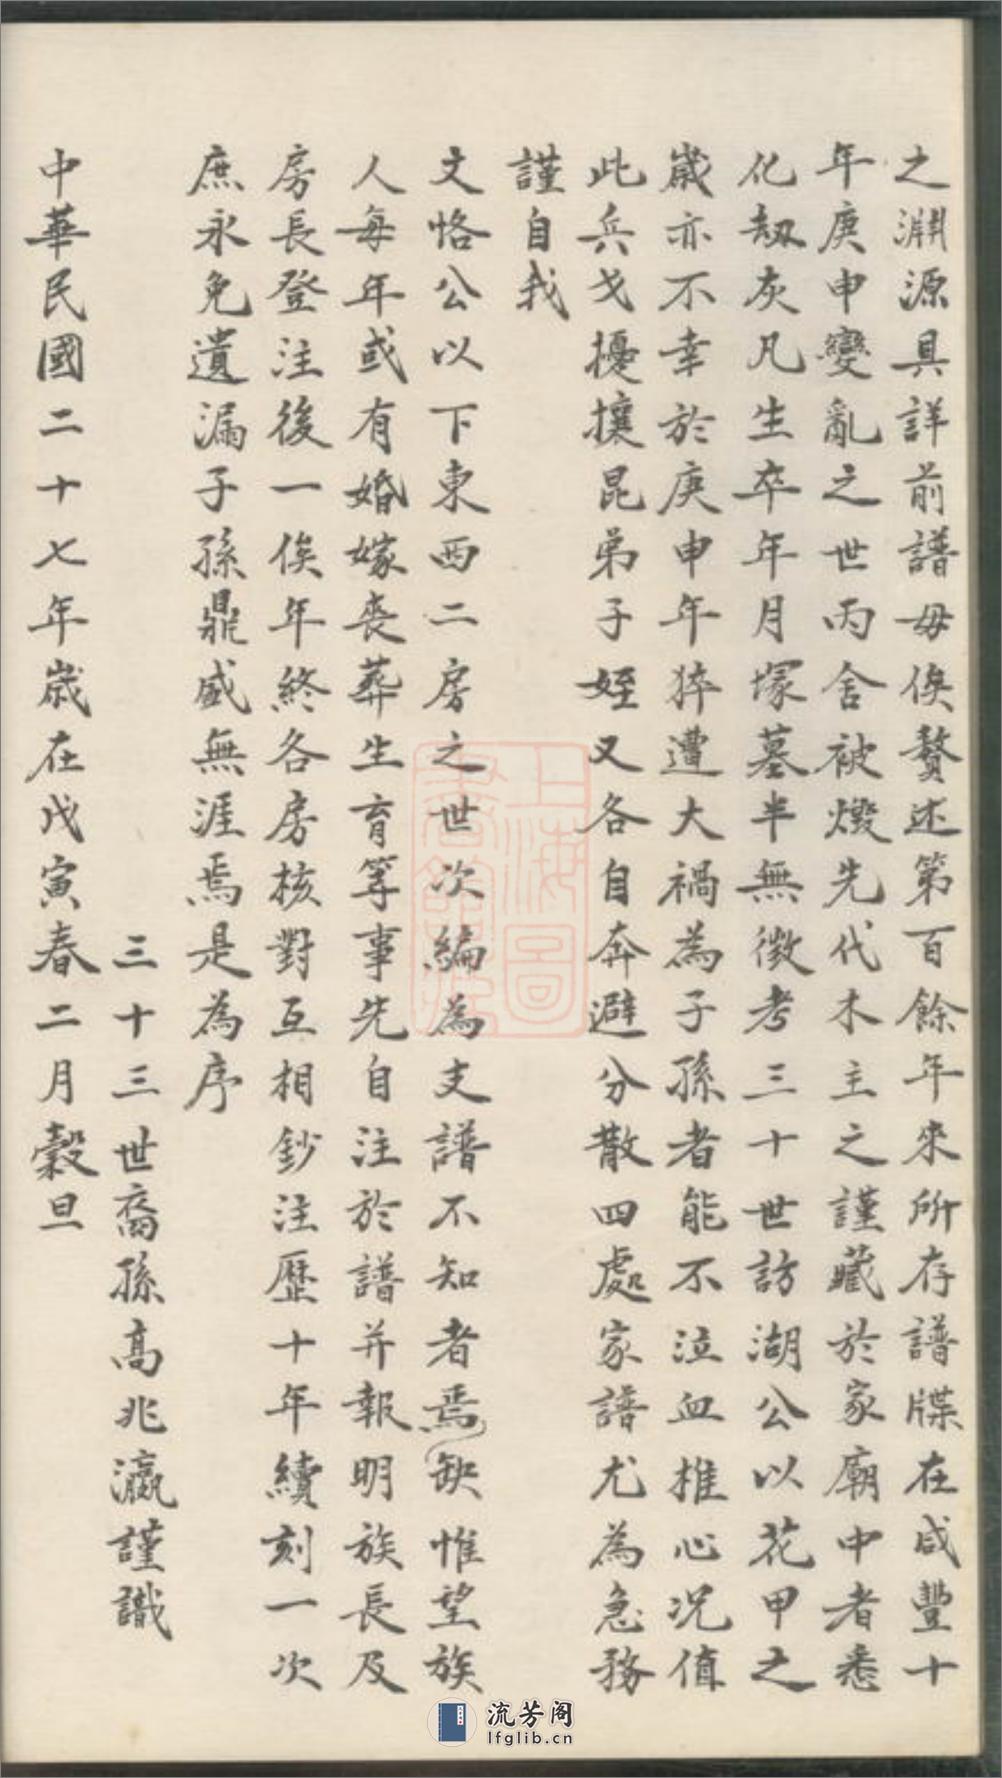 之淵源具詳前譜毋俟贅述第百餘年來所存譜牒在咸豐十
年庚申變亂之世丙舍被燬先代木主之謹藏於家廟中者悉
化劫灰凡生卒年月塚墓半無徵考三十世訪湖公以花甲之
歲亦不幸於庚申年猝遭大禍為子孫者能不泣血推心況值
此兵戈擾攘昆弟子姪又各自奔避分散四處家譜尤為急務
謹自我
文恪公以下東西二房之世次編為支譜不知者焉缺惟望族
人每年或有婚嫁喪葬生育等事先自注於譜并報明族長及
房長登注後一俟年終各房核對互相鈔注歷十年續刻一次
庶永免遺漏子孫鼎盛無涯焉是為序
三十三世裔孫高兆瀛謹識
中華民國二十七年歲在戊寅春二月穀旦
上海圖
書館藏
流芳阁
lfglib.cn